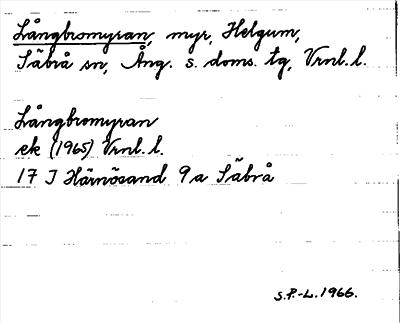 Långbromyran, myr, Helgum,
Säbrå sn, Ång. s. doms. tg, Vrnl. l.
Långbromyran
ek (1965) Vrnl. l.
17 J Härnösand 9a Säbrå
S.P.-L. 1966.